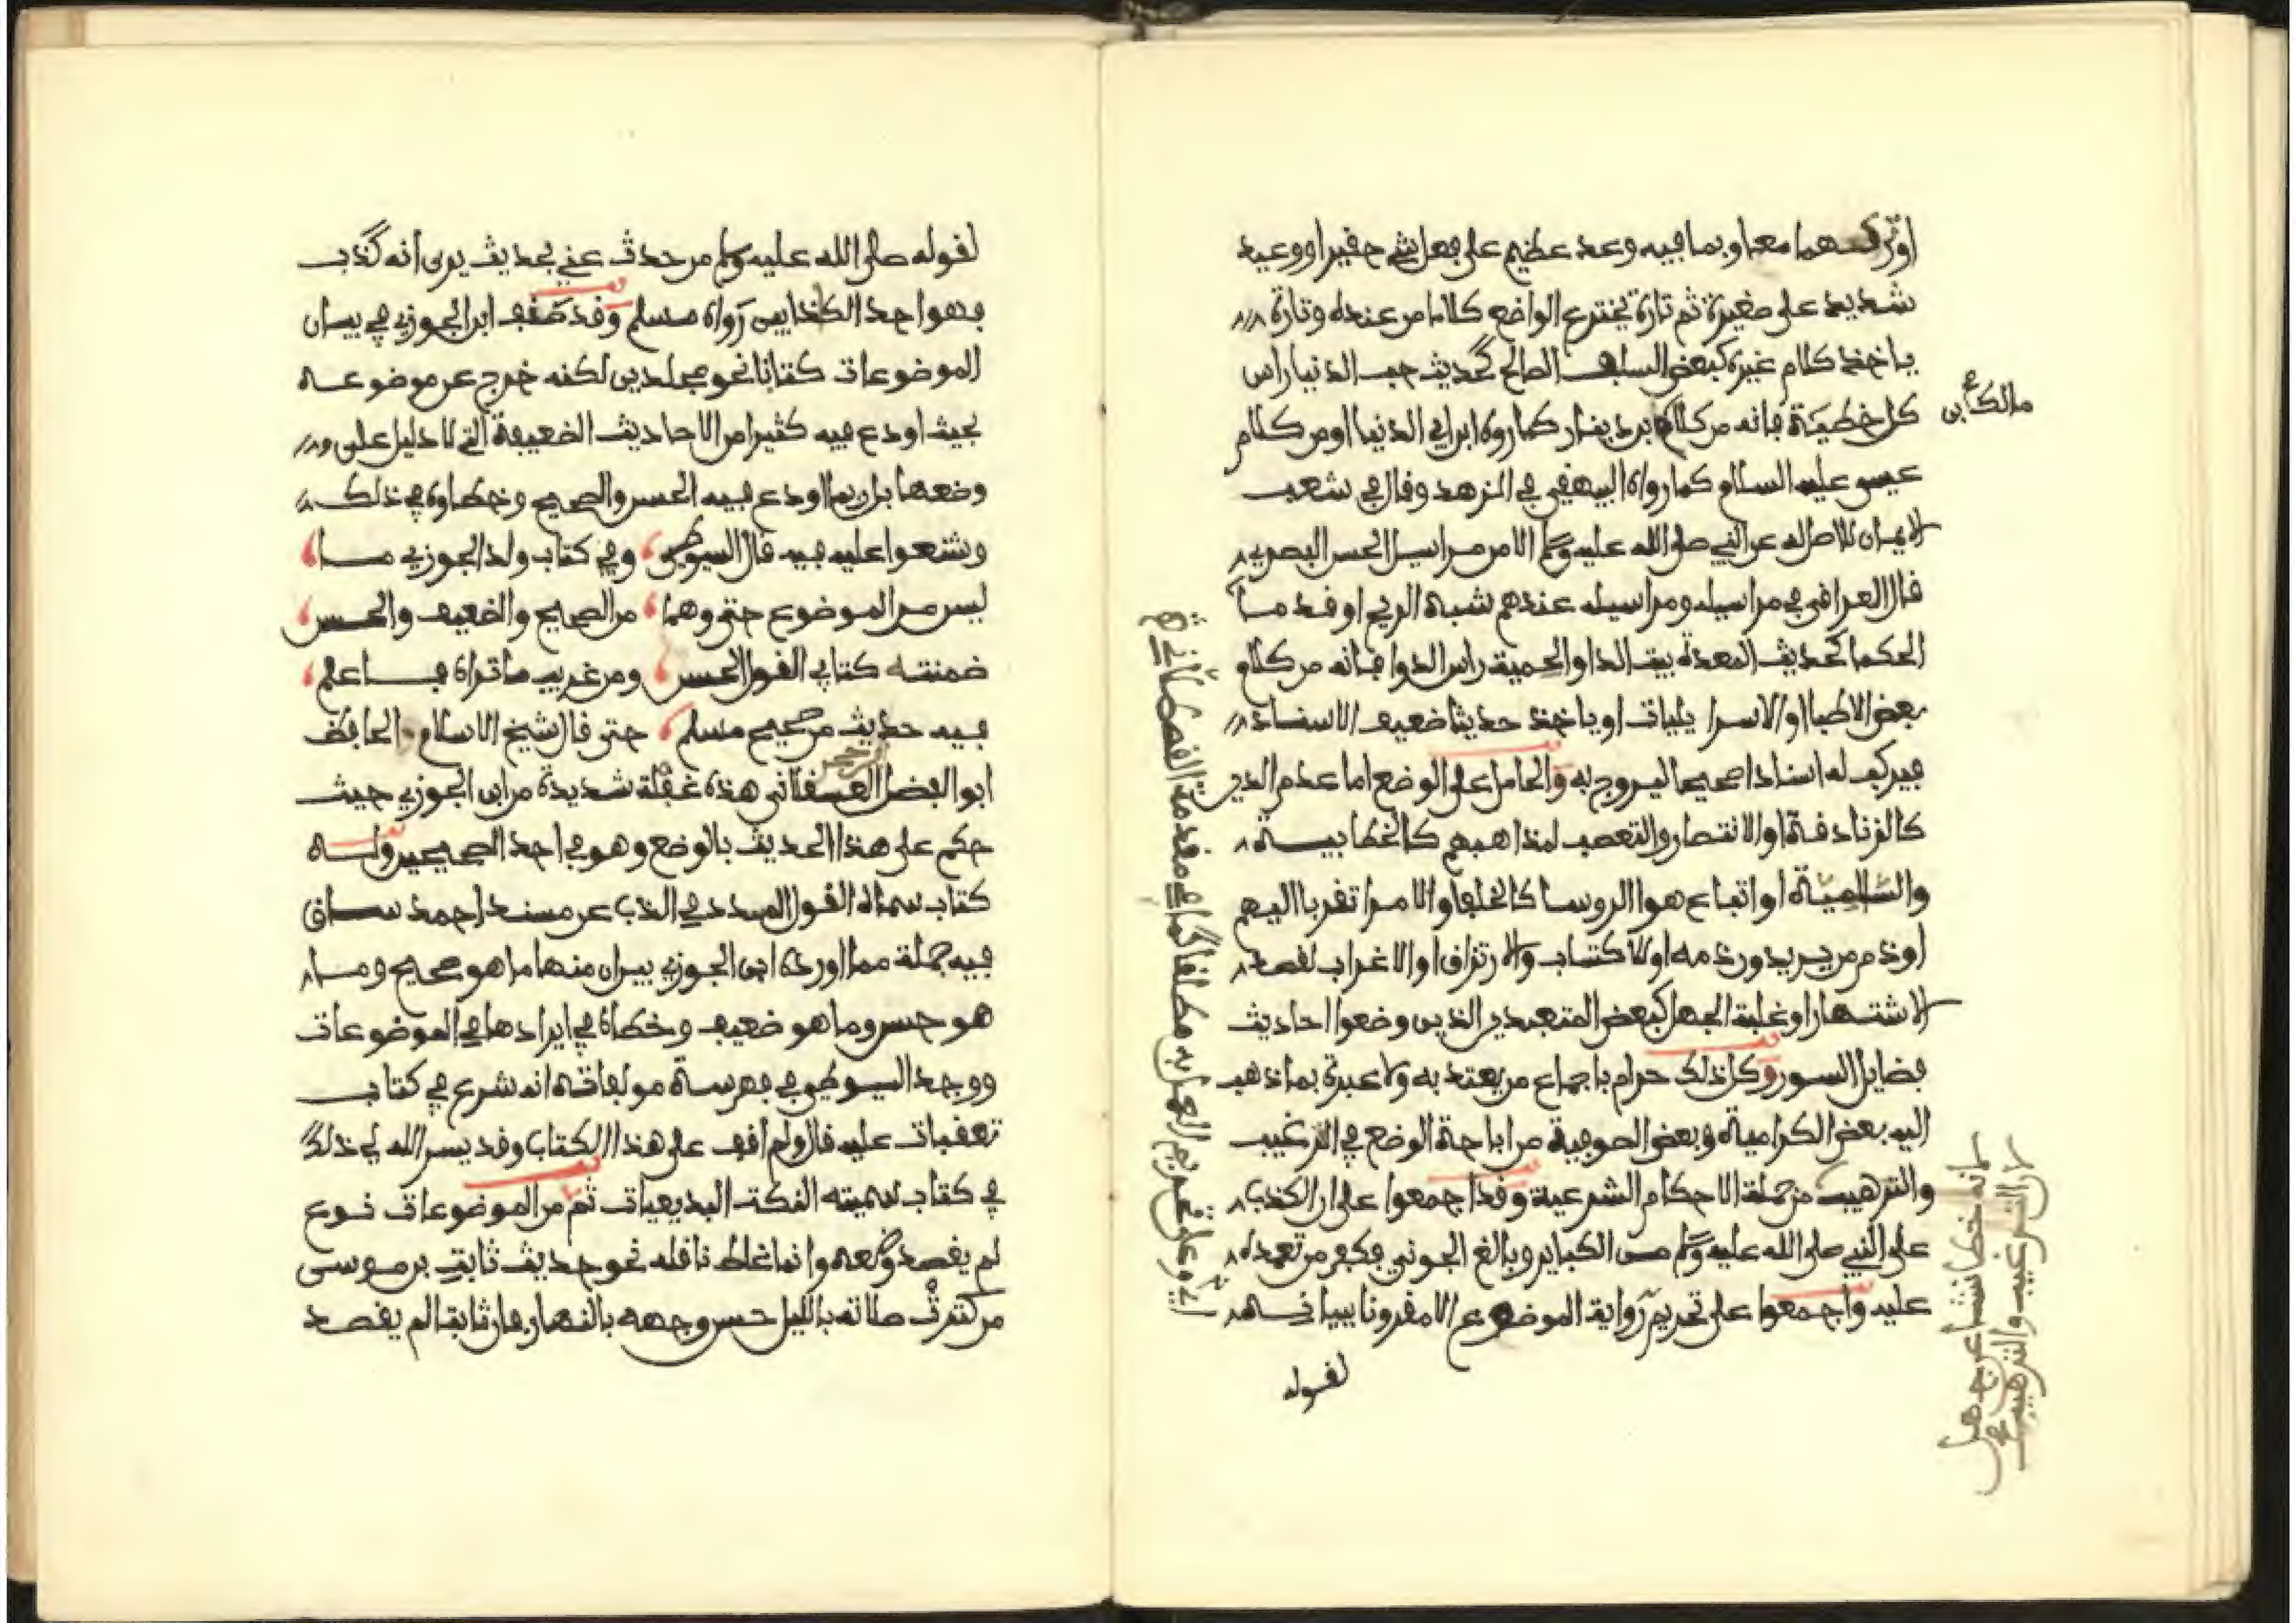 او تركـهما معا وبما فيه وعد عظيم على فعل شيء حقير او وعيد
شديد على صغيرة ثم تارة يخترع الواضع كلاما من عنده وتارة
ياخذ كلام غيره كبعض السلف الصالح كحديث حب الدنيا راس
كل خطيئة فانه من كلام بن دينار كما رواه ابن ابي الدنيا او من كلام
مالك بن صح
عيسى عليه السلام كما رواه البيهقي في الزهد وقال في شعب
الايمان لا اصل له عن النبي صلى الله عليه وسلم الا من مراسيل الحسن البصري
قال العراقي في مراسيله ومراسيله عندهم شبه الريح او قدما
الحكما كحديث المعدة بيت الدا والحمية راس الدوا فانه من كلام
بعض الاطبا او الاسراييليات او ياخذ حديثا ضعيف الاسناد
فيركب له اسنادا صحيحا ليروج به والحامل على الوضع اما عدم الدين
كالزنادقة او الانتصار والتعصب لمذاهبهم كالخطابية
والسالمية او اتباع هوا الروسا كالخلفا والامرا تقربا اليهم
او ذم من يريدون ذمه او الاكتساب والارتزاق او الاغراب لقصد
الاشتهار او غلبة الجهل كبعض المتعبدين الذين وضعوا احاديث
فضايل السور وكل ذلك حرام باجماع من يعتد به ولا عبرة بما ذهب
اليه بعض الكرامية وبعض الصوفية من اباحة الوضع في الترغيب
والترهيب من جملة الاحكام الشرعية وقد اجمعوا على ان الكذب
لانه خطا نشا عن جهل
لان الترغيب والترهيب صح
على النبي صلى الله عليه وسلم من الكباير وبالغ الجوني فكفر من تعمده
عليه واجمعوا على تحريم رواية الموضوع الا مقرونا ببيانه
اي وعلى تحريم العمل به مطلقا كما في مقدمة القصطلاني
لقوله
لقوله صلى الله عليه وسلم من حدث عني بحديث يرى انه كذب
فهو احد الكذابين رواه مسلم وقد صنف ابن الجوزي في بيان
الموضوعات كتابا نحو مجلدين لكنه خرج عن موضوعه
بحيث اودع فيه كثيرا من الاحاديث الضعيفة التي لا دليل على
وضعها بل ربما اودع فيه الحسن والصحيح وخطاوه في ذلك
وشنعوا عليه فيه قال السيوطي وفي كتاب ولد الجوزي ما
ليس من الموضوع حتى وهما من الصحيح والضعيف والحسن
ضمنته كتابي القول الحسن ومن غريب ما تراه فاعلم
فيه حديث من صحيح مسلم حتى قال شيخ الاسلام الحافظ
ابو الفضل بن حجر العسقلاني هذه غفلة شديدة من ابن الجوزي حيث
حكم على هذا الحديث بالوضع وهو في احد الصحيحين وله
كتاب سماه القول المسدد في الذب عن مسند احمد ساق
فيه جملة مما اورده ابن الجوزي يبين منها ما هو صحيح وما
هو حسن وما هو ضعيف وخطاه في ايرادها في الموضوعات
ووجد السيوطي في فهرسة مولفاته انه شرع في كتاب
تعقبات عليه قال ولم اقف على هذا الكتاب وقد يسر الله لي ذلك
في كتاب سميته النكت البديعيات ثم من الموضوعات نوع
لم يقصد وضعه وانما غلط ناقله نحو حديث ثابت بن موسى
من كثرت صلاته بالليل حسن وجهه بالنهار فان ثابتا لم يقصد